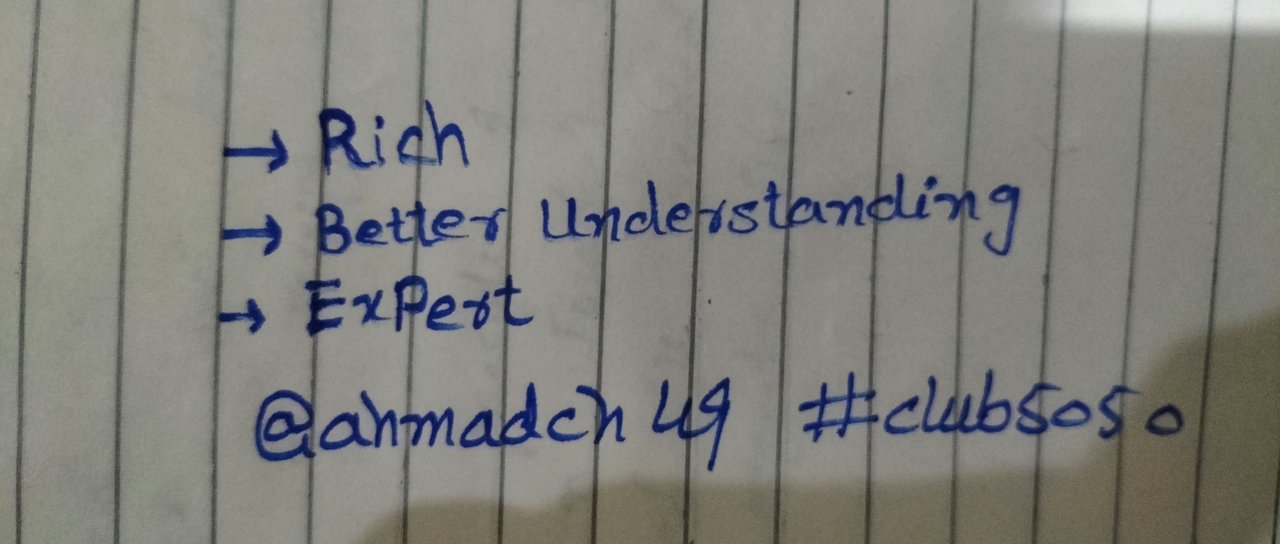 → Rich
→ Better Understanding
→ ExPert
@ahmadch49 #club5050